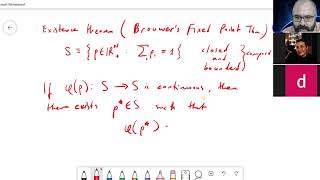 Existence theorem ( Brouwer's Fixed Point Thm )
S = { p ∈ ℝ^N_+ : Σ p_i = 1 } closed and bounded } compact
If φ(p): S → S is continuous, then
there exists p* ∈ S such that
φ(p*)
d